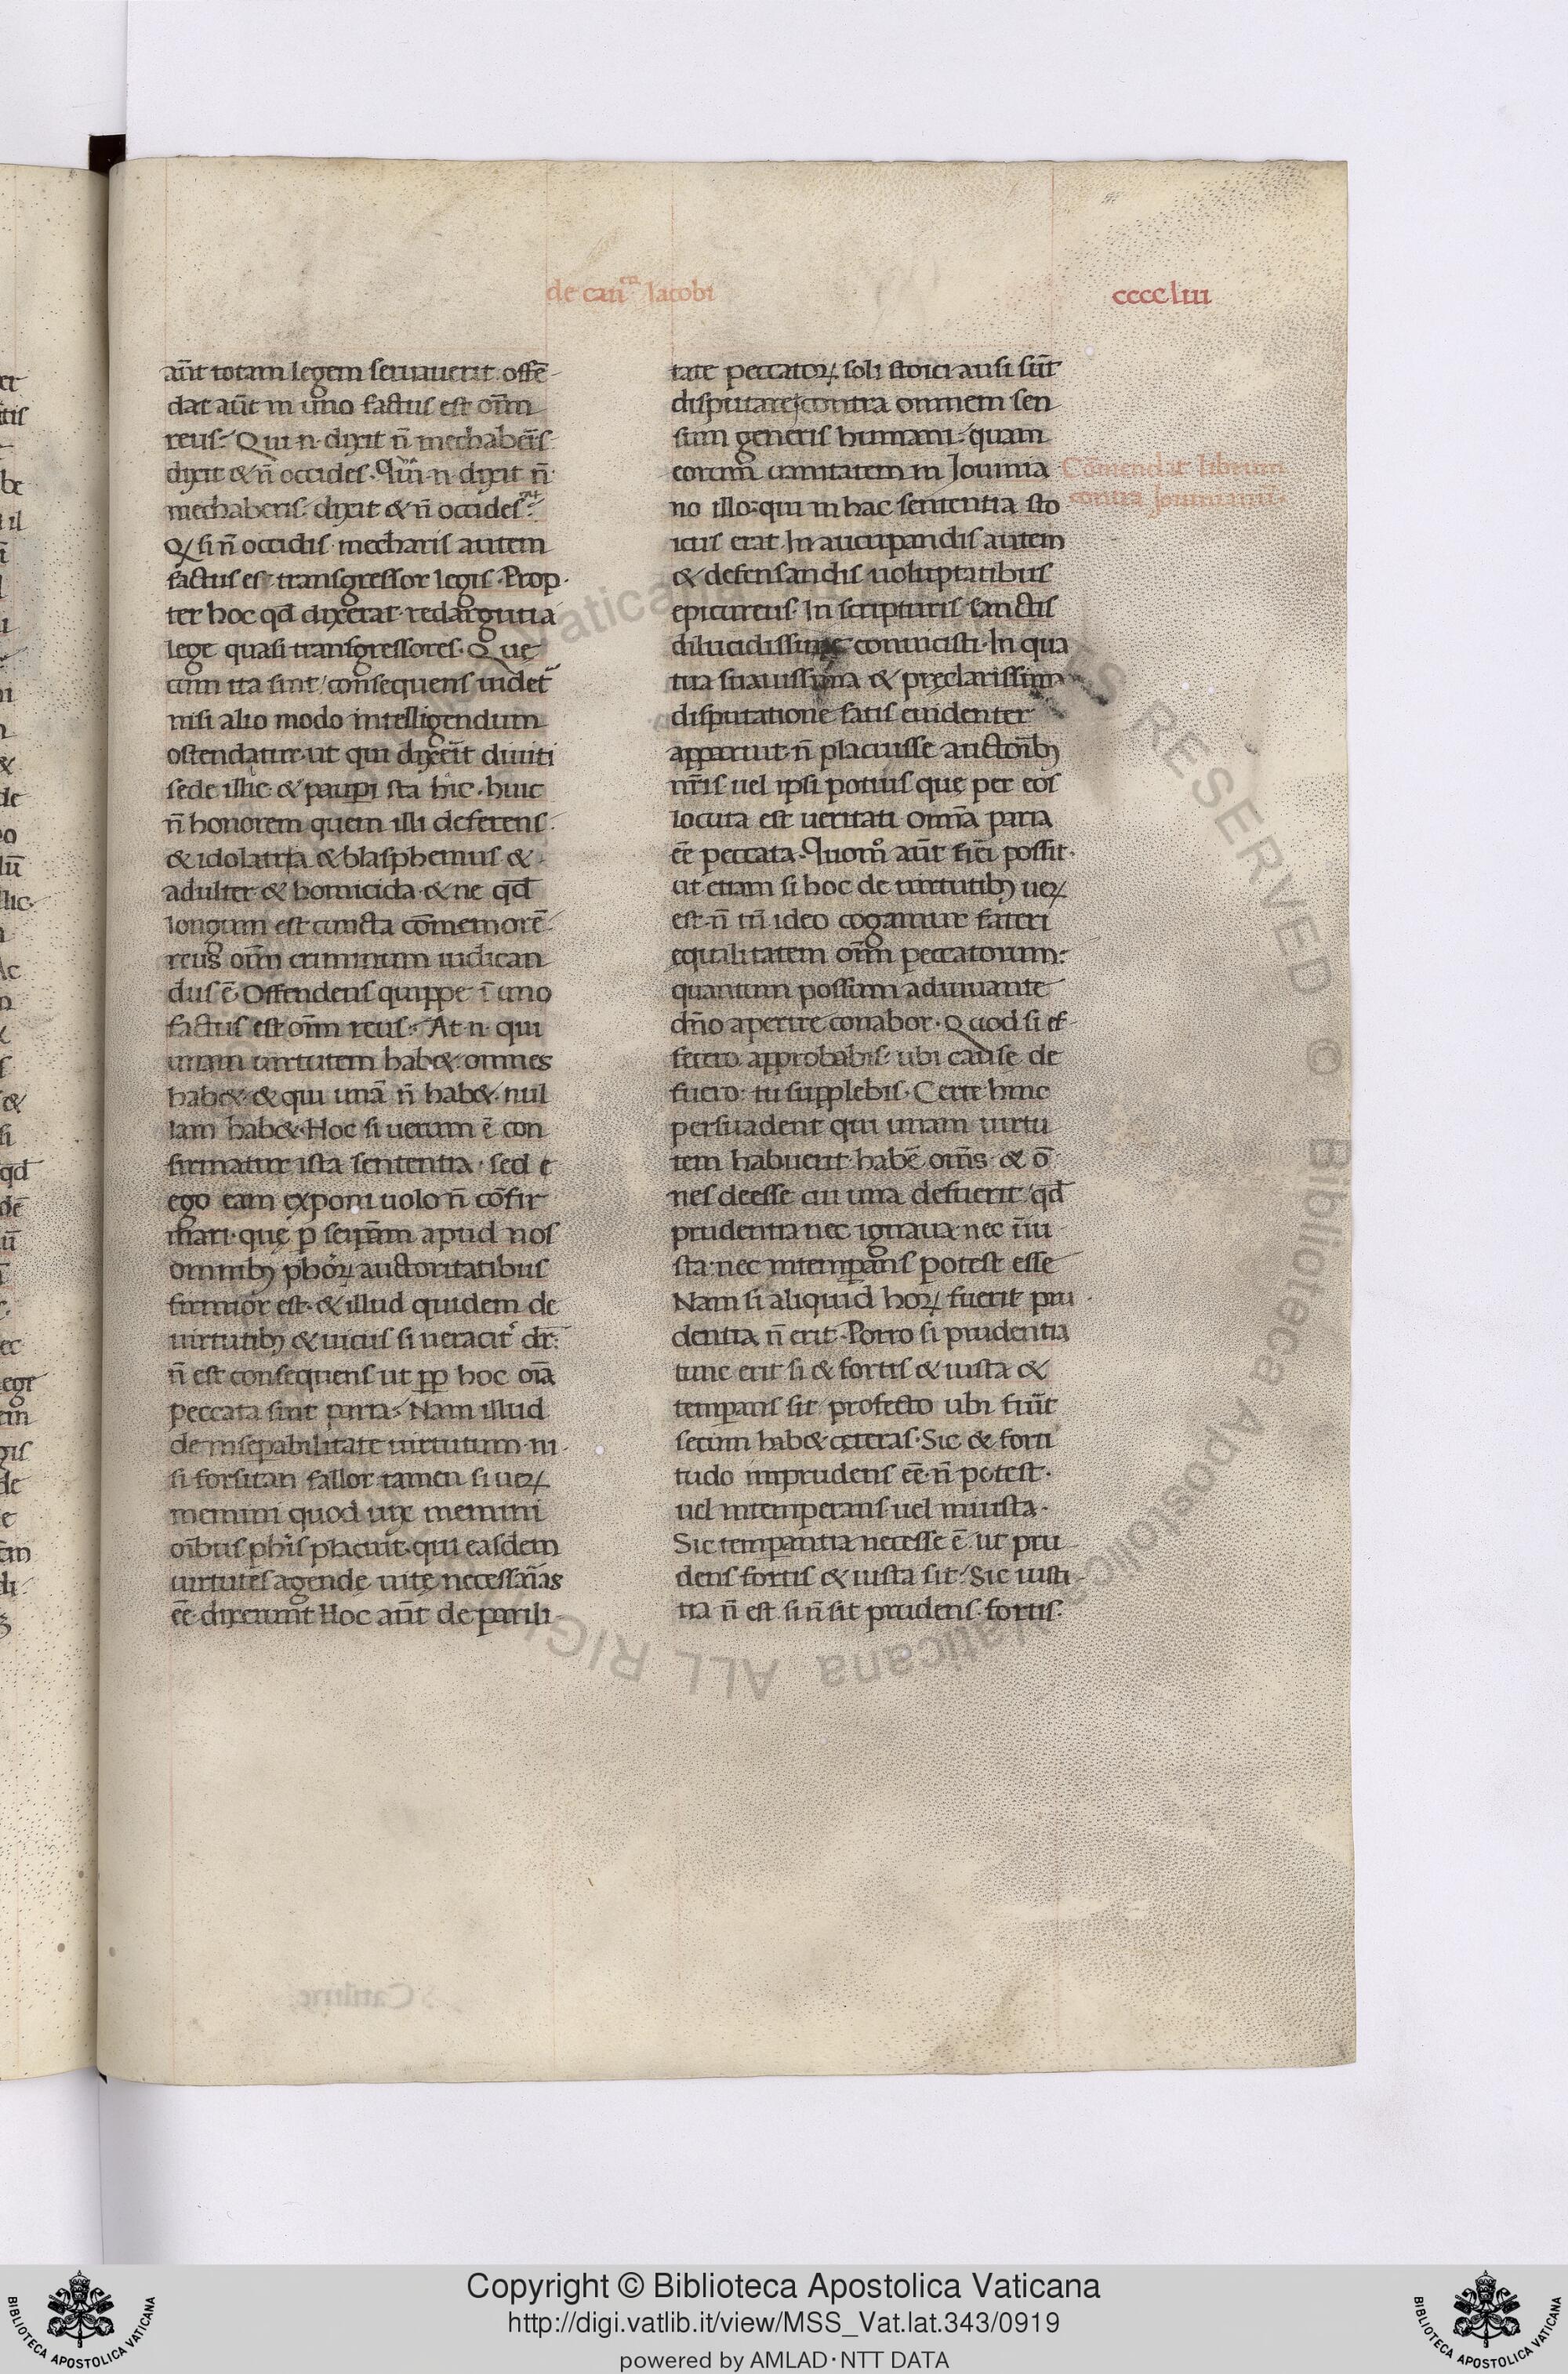 de can̄ca Iacobi
ccccliii
aūt totam legem seruauerit offē-
dat aūt in uno factus est om̄m
reus. Qui n. dixit n̄ mechaberis
dixit & n̄ occides. Qui n. dixit n̄
mechaberis. dixit & n̄ occides.
Qꝫ si n̄ occidis mecharis autem
factus es transgressor legis. Prop
ter hoc qd̄ dixerat redarguti a
lege quasi transgressores. Que
cum ita sint consequens uidet̄
nisi alio modo intelligendum
ostendatur ut qui dixerīt diuiti
sede illic & paupi sta hic. huic
n̄ honorem quem illi deferens.
& idolatria & blasphemus &
adulter & homicida & ne qd̄
longum est cuncta cōmemorē
reus om̄m criminum iudican
dus ē. Offendens quippe ī uno
factus est om̄m reus. At n. qui
unam uirtutem hab& omnes
hab& & qui unā n̄ hab& nul
lam hab&. Hoc si uerum ē con
firmatur ista sententia. sed &
ego eam exponi uolo n̄ cōfir
mari. que p seipsam apud nos
omnibꝫ phōꝝ auctoritatibus
firmior est. & illud quidem de
uirtutibꝫ & uiciis si ueracit̄ dr̄.
n̄ est consequens ut pp hoc oīa
peccata sint paria. Nam illud
de inseparabilitate uirtutum ni
si forsitan fallor tamen si ueꝝ
memini quod uix memini
oībus phīs placuit. qui easdem
uirtutes agende uite necessarias
eē dixerunt. Hoc aūt de parili-
tate peccatoꝝ soli stoici ausi sūt
disputare contra omnem sen
sum generis humani. quam
eorum uanitatem in Iouinia
no illo qui in hac sententia sto
icus erat. In aucupandis autem
& defensandis uoluptatibus
epicureus. In scripturis sanctis
dilucidissime conuicisti. In qua
tua suauissima & preclarissima
disputatione satis euidenter
apparuit n̄ placuisse auctorībꝫ
nr̄is uel ipsi potius que per eos
locuta est ueritati omīa paria
eē peccata. Quom̊ aūt fieri possit.
ut etiam si hoc de uirtutibꝫ ueꝝ
est. n̄ tn̄ ideo cogamur fateri
equalitatem om̄m peccatorum.
quantum possum adiuuante
dn̄o aperire conabor. Quod si ef-
fecero approbabis. ubi cause de
fuero. tu supplebis. Certe hinc
persuadent qui unam uirtu
tem habuerit habē om̄s. & ō
nes deesse cui una defuerit. qd̄
prudentia nec ignaua nec īiu
sta. nec intemperans potest esse
Nam si aliquid hoꝝ fuerit pru
dentia n̄ erit. Porro si prudentia
tunc erit si & fortis & iusta &
temperans sit profecto ubi fuīt
secum hab& ceteras. Sic & forti
tudo imprudens eē n̄ potest.
uel intemperans uel iniusta.
Sic temperantia necesse ē ut pru
dens fortis & iusta sit. Sic iusti-
tia n̄ est si n̄ sit prudens. fortis.
Cōmendat librum
contra Iouinianū.
Copyright © Biblioteca Apostolica Vaticana
http://digi.vatlib.it/view/MSS_Vat.lat.343/0919
powered by AMLAD·NTT DATA